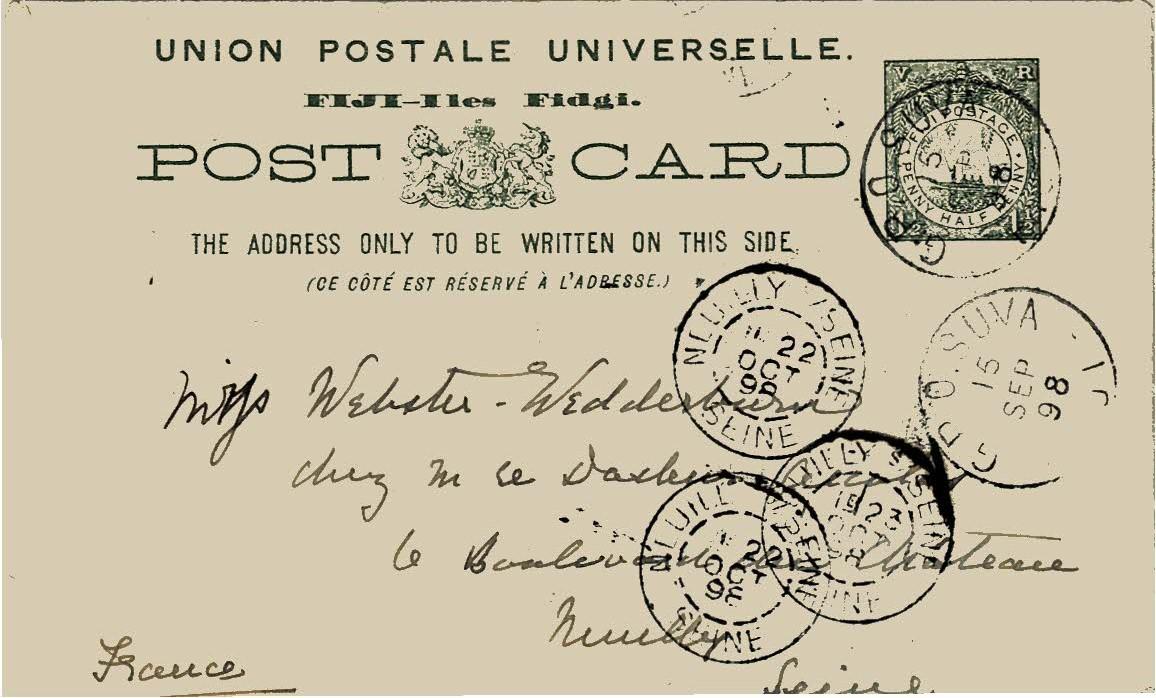 UNION POSTALE UNIVERSELLE.
FIJI—Iles Fidgi.
POST CARD
THE ADDRESS ONLY TO BE WRITTEN ON THIS SIDE.
(CE CÔTÉ EST RÉSERVÉ À L'ADRESSE.)
V R
FIJI POSTAGE
PENNY HALF PENNY
G.P.O. SUVA
15
98
G.P.O. SUVA
15
SEP
98
NEUILLY S/SEINE
22
OCT
98
SEINE
Miss Webster-Wedderburn
chez M le
6 Boulevard du Château
Neuilly
Seine
France
NEUILLY S/SEINE
22
OCT
98
SEINE
NEUILLY S/SEINE
23
OCT
98
SEINE